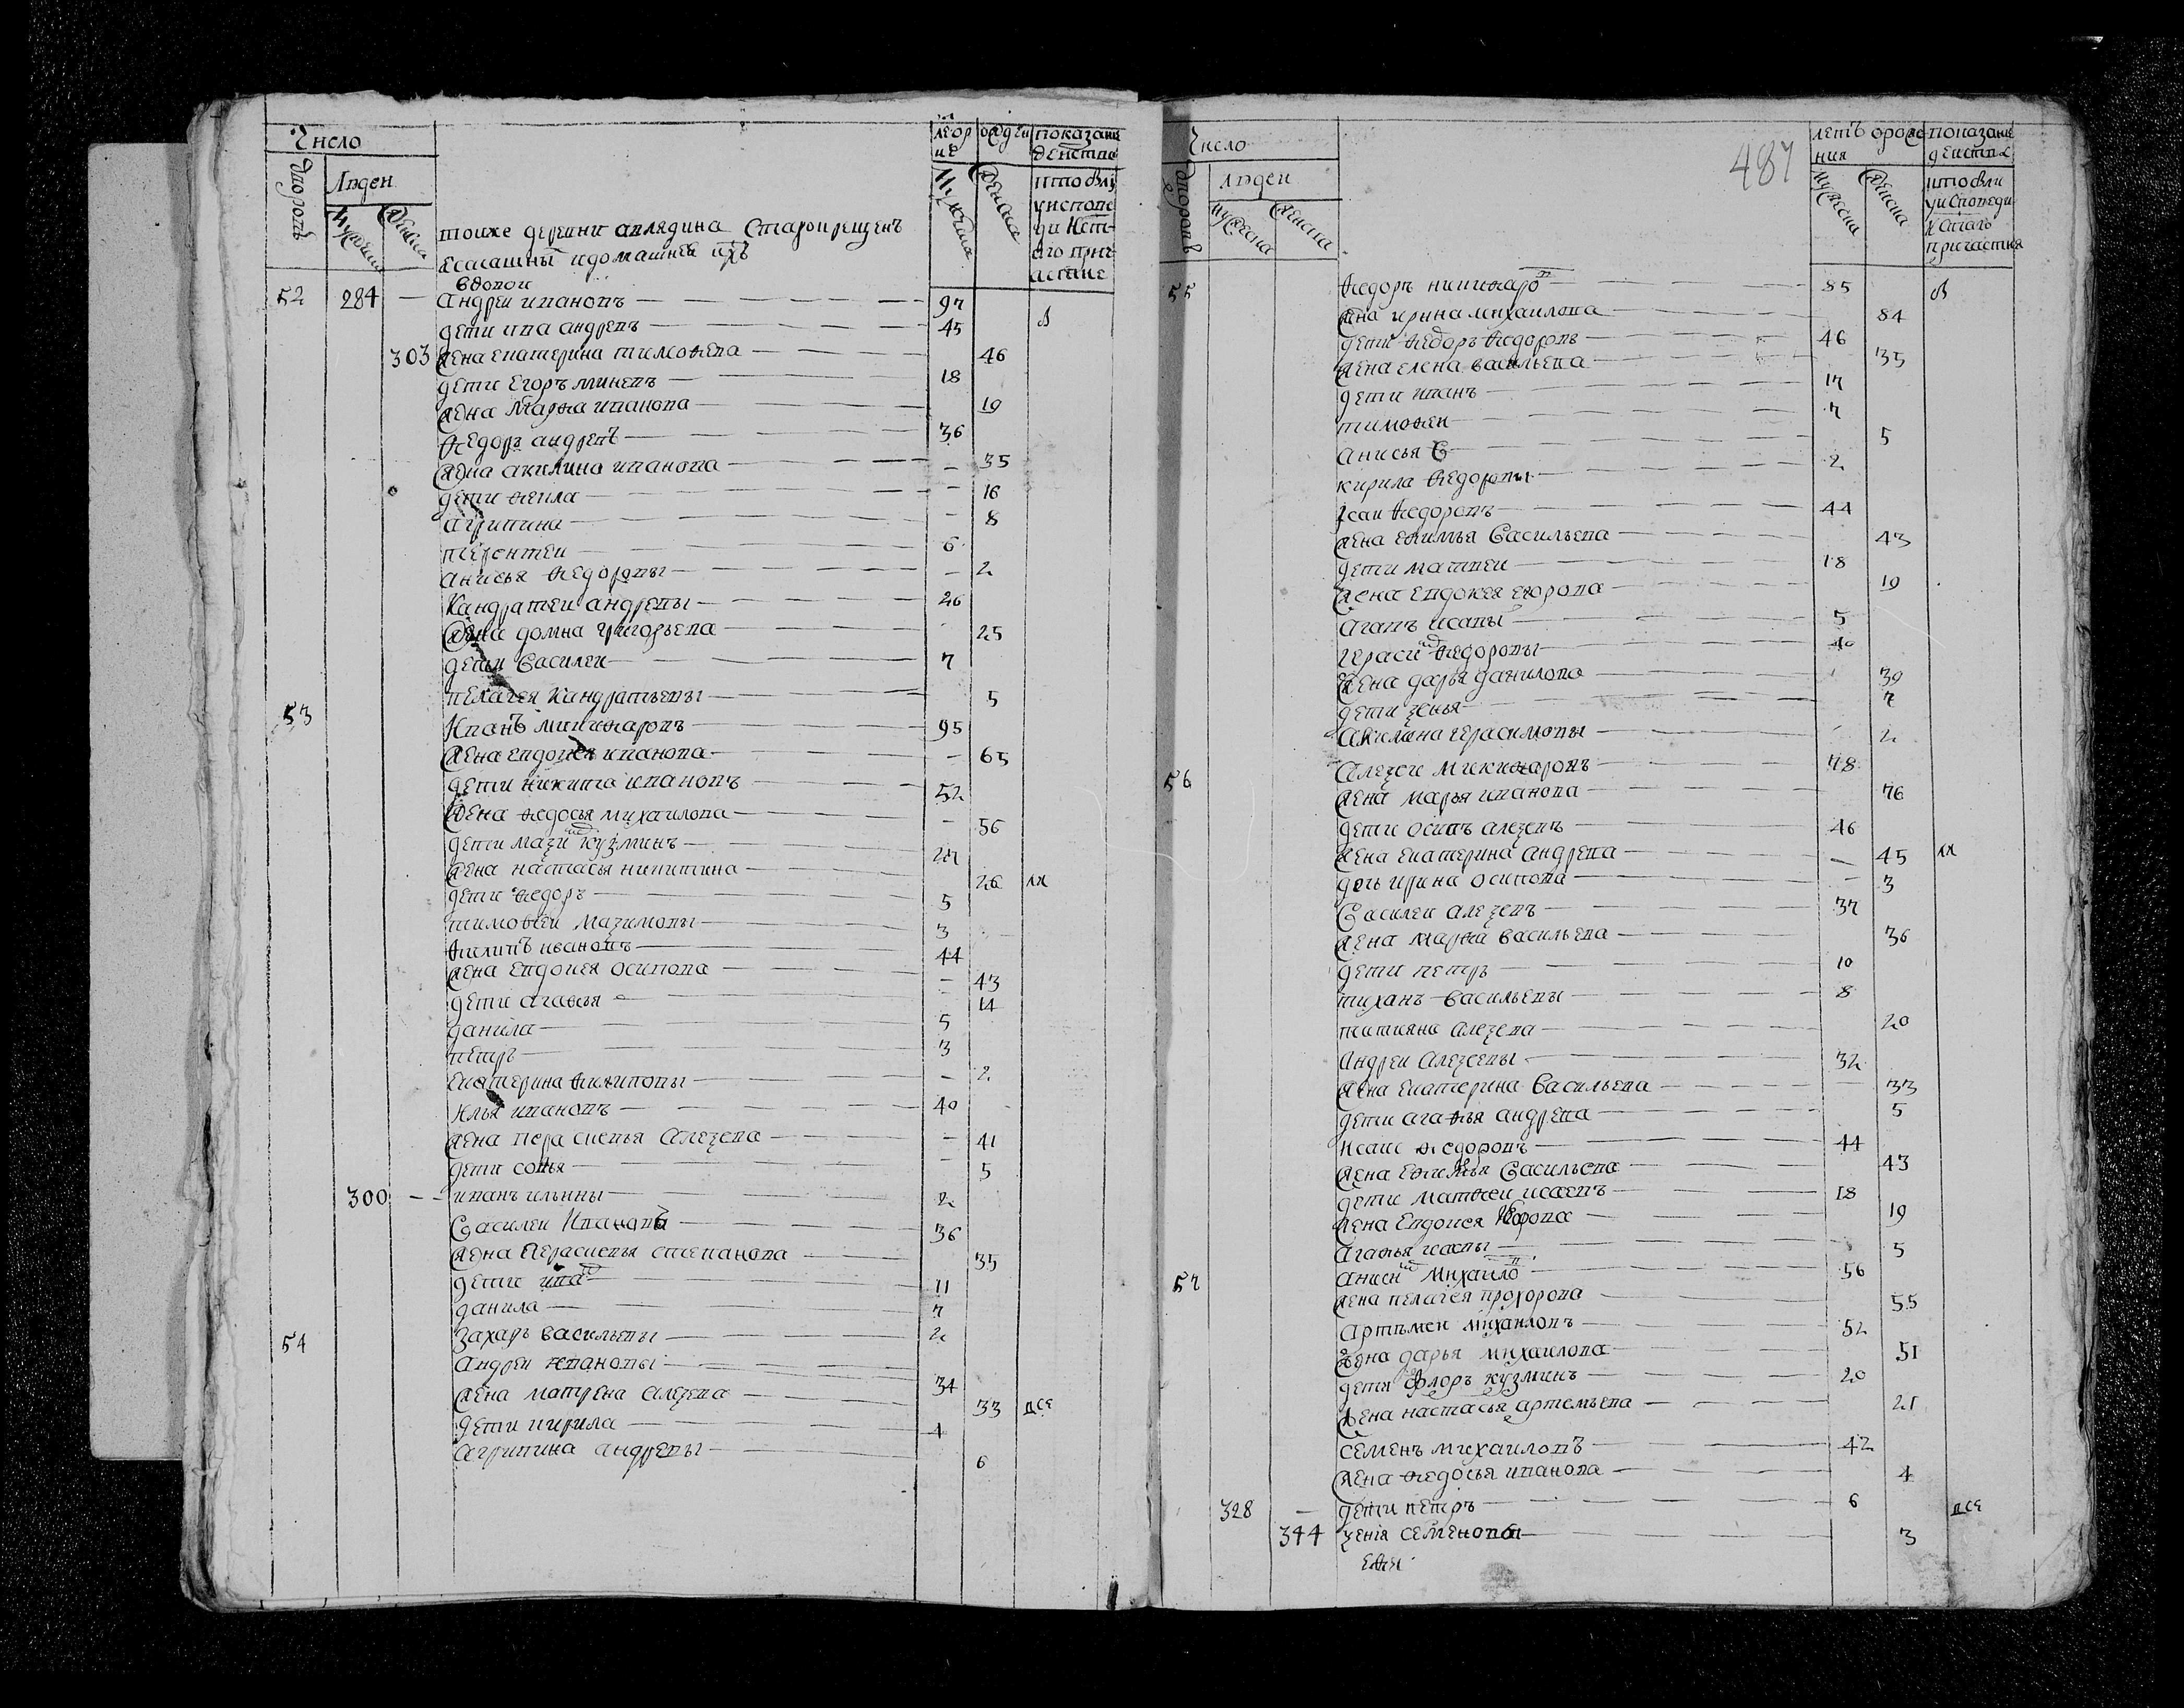 Число
Дворовъ
Людеи
Мужеска
Женска
летъ отрожде
ние
Мужеска
Женска
показание
деиства
ктобылъ
уисповеди
Исвятого причастие
тоиже деревни Старокрещенъ
Ясашныя идомашние ихъ
вдовои
52 284 — Андреи ивановъ 97
дети ива андревъ 45 в
303 жена екатерина тимофева 46
дети Егоръ миневъ 18
жена Марфа иванова 19
федоръ андревъ 36
жена акилина иванова 35
дети фекла 16
агрипина 8
терентеи 6
анисья федоровы 2
Кандратеи андревы 26
Жена домна григорьева 25
дети Василеи 7
пелагея Кандратьевы 5
53 Иванъ микифаровъ 95
жена евдокея иванова 65
дети никита ивановъ 52
Жена федосья михаилова 56
дети мази кузминъ 27
жена настасья никитина 26 ля
дети федоръ 5
тимофеи мазимовы 3
филипъ ивановъ 44
жена Евдокея осипова 43
дети агафья 14
данила 5
петръ 3
Екатерина филиповы 2
Илья ивановъ 40
жена Перасковья Алезева 41
дети софья 5
300 — иванъ ильины 2
Василеи Ивановъ 36
жена Перасковья степанова 35
дети ива 11
данила 7
захаръ васильевы 2
54 Андреи ивановы 34
жена матрена алезева 33 все
дети кирила 1
агрипина андревы 6
487
Число
Дворовъ
Людеи
Мужеска
Женска
летъ орожде
ния
Мужеска
Женска
показание
деиства
ктобыли
уисповеди
Исвятаго
причастия
55 федоръ никифаро 85 в
жена ирина михаилова 84
дети федоръ федоровъ 46
жена елена васильева 35
дети иванъ 17
тимофеи 7
анисья 5
кирила федоровы 2
Исаи федоровъ 44
жена ефимья Васильева 43
дети матвеи 18
жена евдокея егорова 19
агапъ исаевы 5
гераси федоровы 40
жена дарья данилова 39
дети зенья 7
акилина герасимовы 2
56 Алезеи микифаровъ 78
жена марья иванова 76
дети осипъ алезевъ 46
жена екатерина андрева 45 ля
дочь ирина осипова 3
Василеи алезевъ 37
жена марфа васильева 36
дети петръ 10
тиханъ васильевы 8
татияна алезева 20
андреи алезеевы 32
жена екатерина Васильева 33
дети агафья андрева 5
Исаис федоровъ 44
жена Ефимья Васильева 43
дети матфеи исаевъ 18
жена Евдокея 19
агафья исаевы 5
57 аниси Михаило 56
жена пелагея прохорова 55
артъмеи михаиловъ 52
жена дарья михаилова 51
детя Флоръ кузминъ 20
Жена настасья артемьева 21
семенъ михаиловъ 42
жена федосья иванова 4
328 — дети петръ 6 все
344 зенія семеновы 3